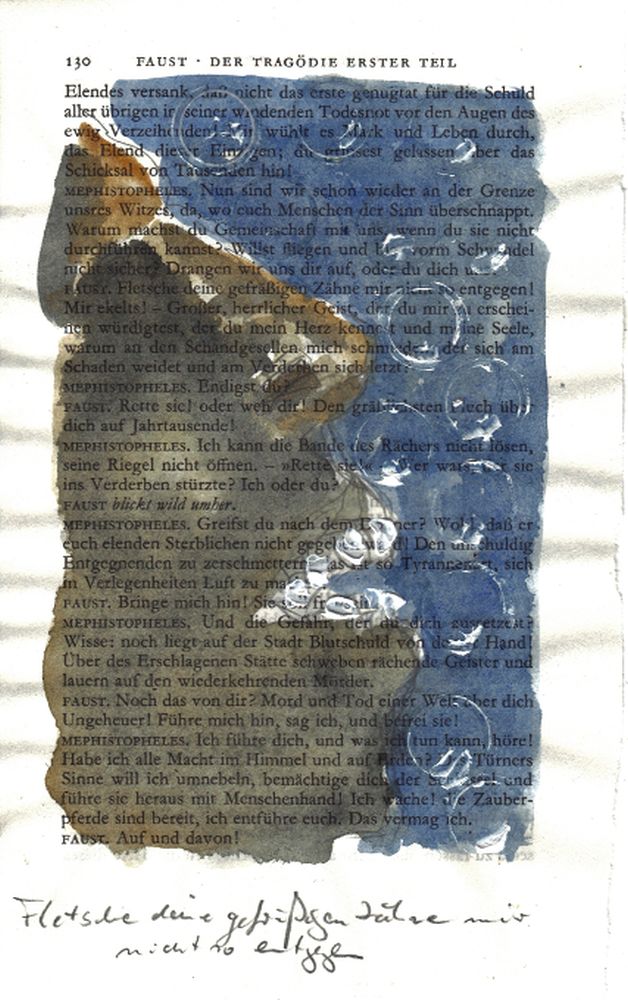 130 FAUST · DER TRAGÖDIE ERSTER TEIL
Elendes versank, daß nicht das erste genugtat für die Schuld
aller übrigen in seiner windenden Todesnot vor den Augen des
ewig Verzeihenden! Mir wühlt es Mark und Leben durch,
das Elend dieser Einzigen; du grinsest gelassen über das
Schicksal von Tausenden hin!
MEPHISTOPHELES. Nun sind wir schon wieder an der Grenze
unsres Witzes, da, wo euch Menschen der Sinn überschnappt.
Warum machst du Gemeinschaft mit uns, wenn du sie nicht
durchführen kannst? Willst fliegen und bist vorm Schwindel
nicht sicher? Drangen wir uns dir auf, oder du dich uns?
FAUST. Fletsche deine gefräßigen Zähne mir nicht so entgegen!
Mir ekelts! – Großer, herrlicher Geist, der du mir zu erschei-
nen würdigtest, der du mein Herz kennest und meine Seele,
warum an den Schandgesellen mich schmieden, der sich am
Schaden weidet und am Verderben sich letzt?
MEPHISTOPHELES. Endigst du?
FAUST. Rette sie! oder weh dir! Den gräßlichsten Fluch über
dich auf Jahrtausende!
MEPHISTOPHELES. Ich kann die Bande des Rächers nicht lösen,
seine Riegel nicht öffnen. – »Rette sie!« – Wer wars, der sie
ins Verderben stürzte? Ich oder du?
FAUST blickt wild umher.
MEPHISTOPHELES. Greifst du nach dem Donner? Wohl, daß er
euch elenden Sterblichen nicht gegeben ward! Den unschuldig
Entgegnenden zu zerschmettern, das ist so Tyrannenart, sich
in Verlegenheiten Luft zu machen.
FAUST. Bringe mich hin! Sie soll frei sein!
MEPHISTOPHELES. Und die Gefahr, der du dich aussetzest?
Wisse: noch liegt auf der Stadt Blutschuld von deiner Hand!
Über des Erschlagenen Stätte schweben rächende Geister und
lauern auf den wiederkehrenden Mörder.
FAUST. Noch das von dir? Mord und Tod einer Welt über dich
Ungeheuer! Führe mich hin, sag ich, und befrei sie!
MEPHISTOPHELES. Ich führe dich, und was ich tun kann, höre!
Habe ich alle Macht im Himmel und auf Erden? Des Türners
Sinne will ich umnebeln, bemächtige dich der Schlüssel und
führe sie heraus mit Menschenhand! Ich wache! die Zauber-
pferde sind bereit, ich entführe euch. Das vermag ich.
FAUST. Auf und davon!
Fletsche deine gefräßigen Zähne mir
nicht so entgegen